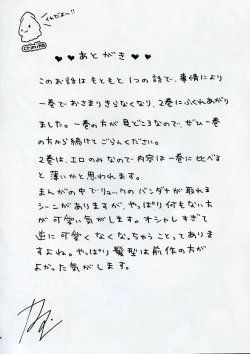 ♥♥あとがき♥♥
このお話はもともと1つの話で、事情により
一巻でおさまりきらなくなり、2巻にふくれあがり
ました。一巻の方が見どころなので、ぜひ一巻
の方から続けてごらんください。
2巻は、エロのみなので内容は一巻に比べる
と薄いかと思われます。
まんがの中でリュックのバンダナが取れる
シーンがありますが、やっぱり何もない方
が可愛い気がします。オシャレしすぎて
逆に可愛くなくなっちゃうことってありま
すよね。やっぱり髪型は前作の方が
よかった気がします。